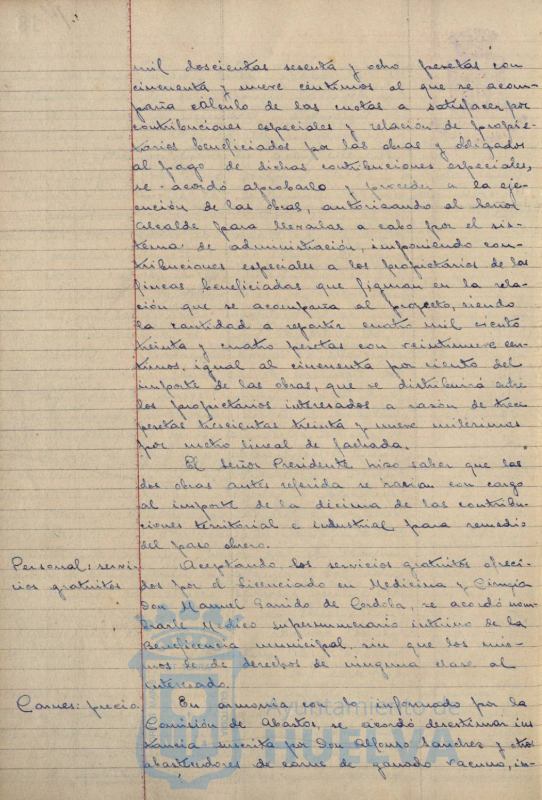 mil doscientas sesenta y ocho pesetas con
cincuenta y nueve centimos al que se acom-
paña cálculo de las cuotas a satisfacer por
contribuciones especiales y relación de propie-
tarios beneficiados por las obras y obligados
al pago de dichas contribuciones especiales,
se acordó aprobarlo y proceder a la eje-
cución de las obras, autorizando al Señor
Alcalde para llevarlas a cabo por el sis-
tema de administración, imponiendo con-
tribuciones especiales a los propietarios de las
fincas beneficiadas que figuran en la rela-
ción que se acompaña al proyecto, siendo
la cantidad a repartir cuatro mil ciento
treinta y cuatro pesetas con veintinueve cen-
timos, igual al cincuenta por ciento del
importe de las obras, que se distribuirá entre
los propietarios interesados a razón de trece
pesetas trescientas treinta y nueve milésimas
por metro lineal de fachada.
El Señor Presidente hizo saber que las
dos obras antes referida se hacian con cargo
al importe de la décima de las contribu-
ciones territorial e industrial para remedio
del paro obrero.
Personal: servi-
cios gratuitos
Aceptando los servicios gratuitos ofreci-
dos por el Licenciado en Medicina y Cirugia
Don Manuel Garrido de Cordoba, se acordó nom-
brarle Medico supernumerario interino de la
Beneficencia municipal, sin que los mis-
mos de derechos de ninguna clase al
interesado.
Carnes: precio.
En armonia con lo informado por la
Comisión de Abastos, se acordó desestimar ins
tancia suscrita por Don Alfonso Sanchez y otros
abastecedores de carne de ganado vacuno, in-
Ayuntamiento de
HUELVA